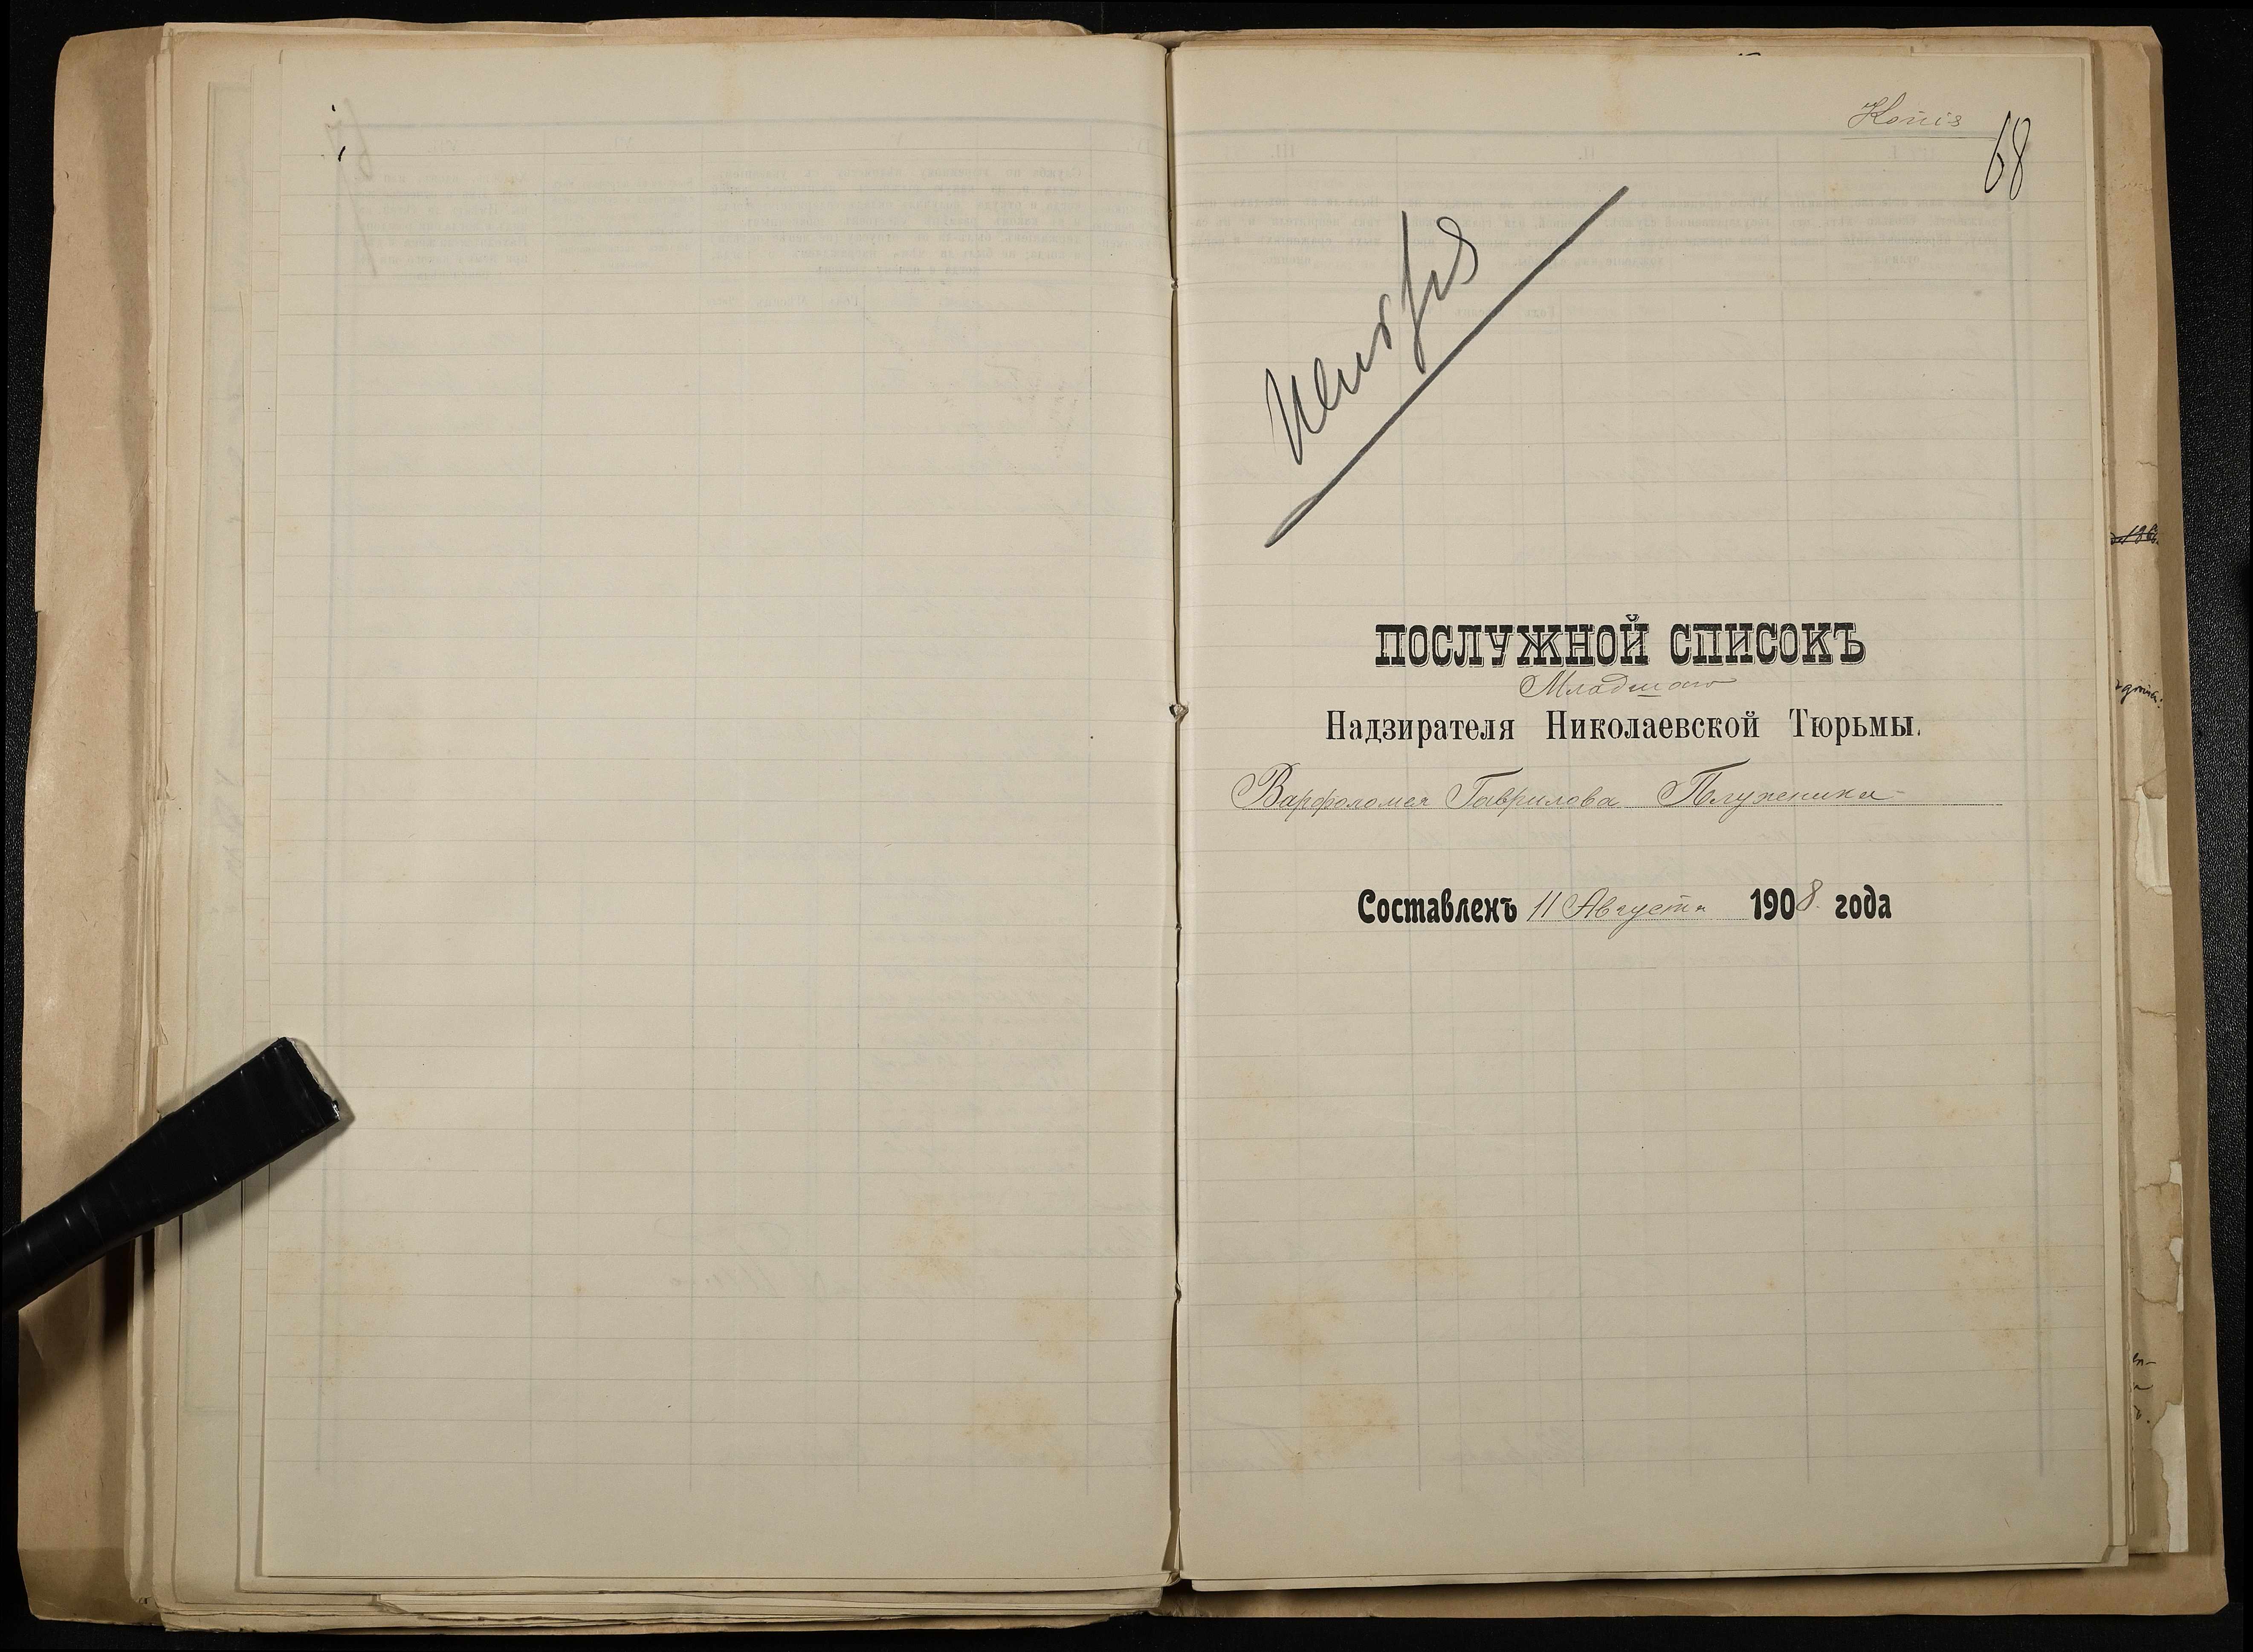 Копія
68
ПОСЛУЖНОЙ СПИСОКЪ
Младшаго
Надзирателя Николаевской Тюрьмы.
Варфоломея Гаврилова Плужника
Составленъ 11 Августа 1908 года